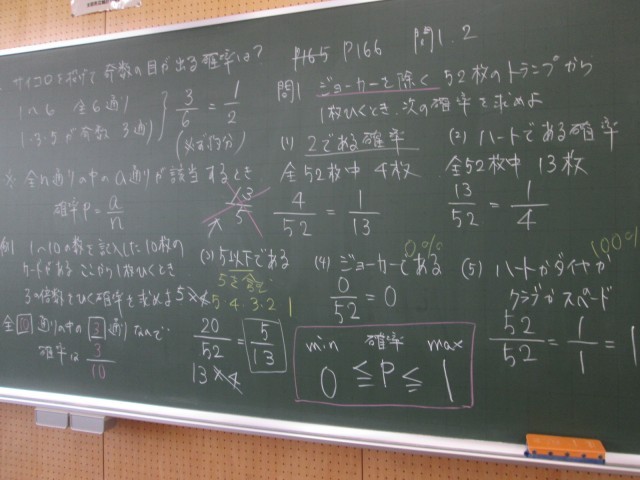 サイコロを投げて奇数の目が出る確率は?
1へ6 全6通り
1・3・5が奇数 3通り
3/6 = 1/2
(必ず約分)
※ 全n通りの中のa通りが該当するとき
確率P = a/n
例1 1〜10の数を記入した10枚の
カードがある ここから1枚ひくとき
3の倍数をひく確率を求めよ
全10通りの中の3通りなので
確率は 3/10
P165 P166 問1.2
問1 ジョーカーを除く52枚のトランプから
1枚ひくとき、次の確率を求めよ
(1) 2である確率
全52枚中 4枚
4/52 = 1/13
(2) ハートである確率
全52枚中 13枚
13/52 = 1/4
(3) 5以下である
5を含む
5×4
5 4 3・2 1
20/52 = 5/13
13×4
(4) ジョーカーである
0%
0/52 = 0
(5) ハートかダイヤか
クラブかスペード
100%
52/52 = 1/1 = 1
min 確率 max
0 ≦ P ≦ 1